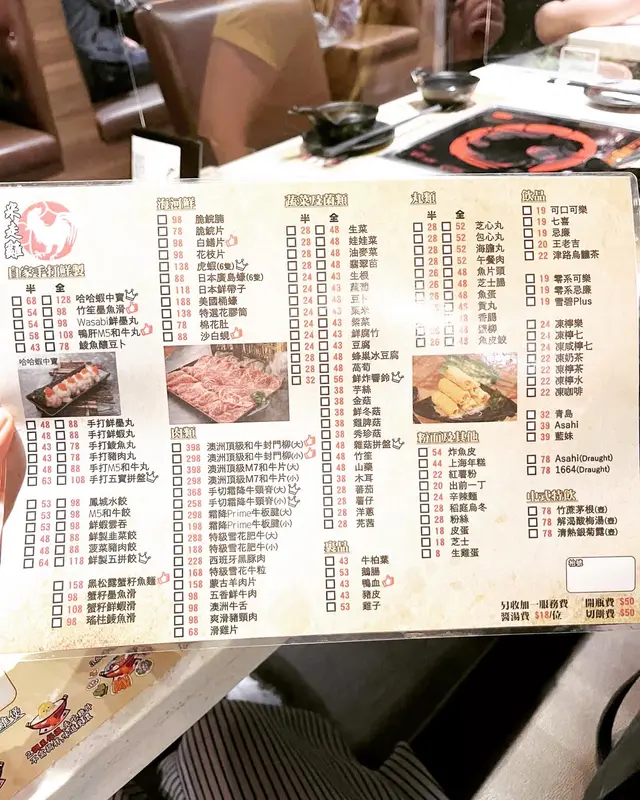 來走雞
自家手打鮮製
半 全
68 128 哈哈蝦中寶
54 98 竹笙墨魚滑
54 98 Wasabi鮮墨丸
58 108 鴨肝M5和牛丸
43 78 鯪魚釀豆卜
哈哈蝦中寶
48 88 手打鮮墨丸
48 88 手打鮮蝦丸
43 78 手打鯪魚丸
43 78 手打豬肉丸
48 88 手打M5和牛丸
63 108 手打五寶拼盤
53 98 鳳城水餃
53 98 M5和牛餃
53 98 鮮蝦雲吞
48 88 鮮製韭菜餃
48 88 菠菜豬肉餃
64 118 鮮製五拼餃
158 黑松露蟹籽魚麵
98 蟹籽墨魚滑
108 蟹籽鮮蝦滑
98 瑤柱鯪魚滑
海河鮮
98 脆鯇腩
78 脆鯇片
98 白鱔片
98 花枝片
138 虎蝦(6隻)
88 日本廣島蠔(6隻)
118 日本鮮帶子
188 美國桶蠔
138 特選花膠筒
78 棉花肚
88 沙白蜆
肉類
398 澳洲頂級和牛封門柳(大)
298 澳洲頂級和牛封門柳(小)
398 澳洲頂級M7和牛片(大)
298 澳洲頂級M7和牛片(小)
368 手切霜降牛頸脊(大)
258 手切霜降牛頸脊(小)
298 霜降Prime牛板腱(大)
198 霜降Prime牛板腱(小)
288 特級雪花肥牛(大)
188 特級雪花肥牛(小)
228 西班牙黑豚肉
168 特級雪花牛粒
158 蒙古羊肉片
98 五香鮮牛肉
98 澳洲牛舌
98 爽滑豬頸肉
68 滑雞片
蔬菜及菌類
半 全
28 48 生菜
28 48 娃娃菜
28 48 油麥菜
28 48 翡翠苗
24 43 生根
24 43 蘿蔔
24 43 豆卜
24 43 粟米
24 43 紫菜
24 43 鮮腐竹
24 43 豆腐
28 48 蜂巢水豆腐
28 48 萵筍
32 56 鮮炸響鈴
38 芋絲
38 金菇
38 鮮冬菇
38 雞髀菇
38 秀珍菇
48 雜菇拼盤
48 竹笙
48 山藥
38 木耳
28 蕃茄
28 薯仔
28 洋蔥
28 芫茜
裏品
43 牛柏葉
53 鵝腸
43 鴨血
43 豬皮
53 雞子
丸類
半 全
28 52 芝心丸
28 52 包心丸
28 52 海膽丸
28 52 午餐肉
26 48 魚片頭
26 48 芝士腸
26 48 魚蛋
48 貢丸
48 香腸
48 蟹柳
26 48 魚皮餃
粉麵及其他
54 炸魚皮
44 上海年糕
22 紅薯粉
20 出前一丁
24 辛辣麵
28 稻庭烏冬
28 粉絲
18 皮蛋
18 芝士
8 生雞蛋
飲品
19 可口可樂
19 七喜
19 忌廉
20 王老吉
22 津路烏龍茶
19 零系可樂
19 零系忌廉
19 雪碧Plus
22 凍檸樂
22 凍檸七
24 凍咸檸七
22 凍奶茶
22 凍檸茶
22 凍檸水
22 凍咖啡
32 青島
39 Asahi
39 藍妹
78 Asahi(Draught)
78 1664(Draught)
中式特飲
78 竹蔗茅根(壺)
78 解渴酸梅湯(壺)
78 清熱銀菊露(壺)
枱號
另收加一服務費 開瓶費 $50
醬湯費 $18/位 切餅費 $50